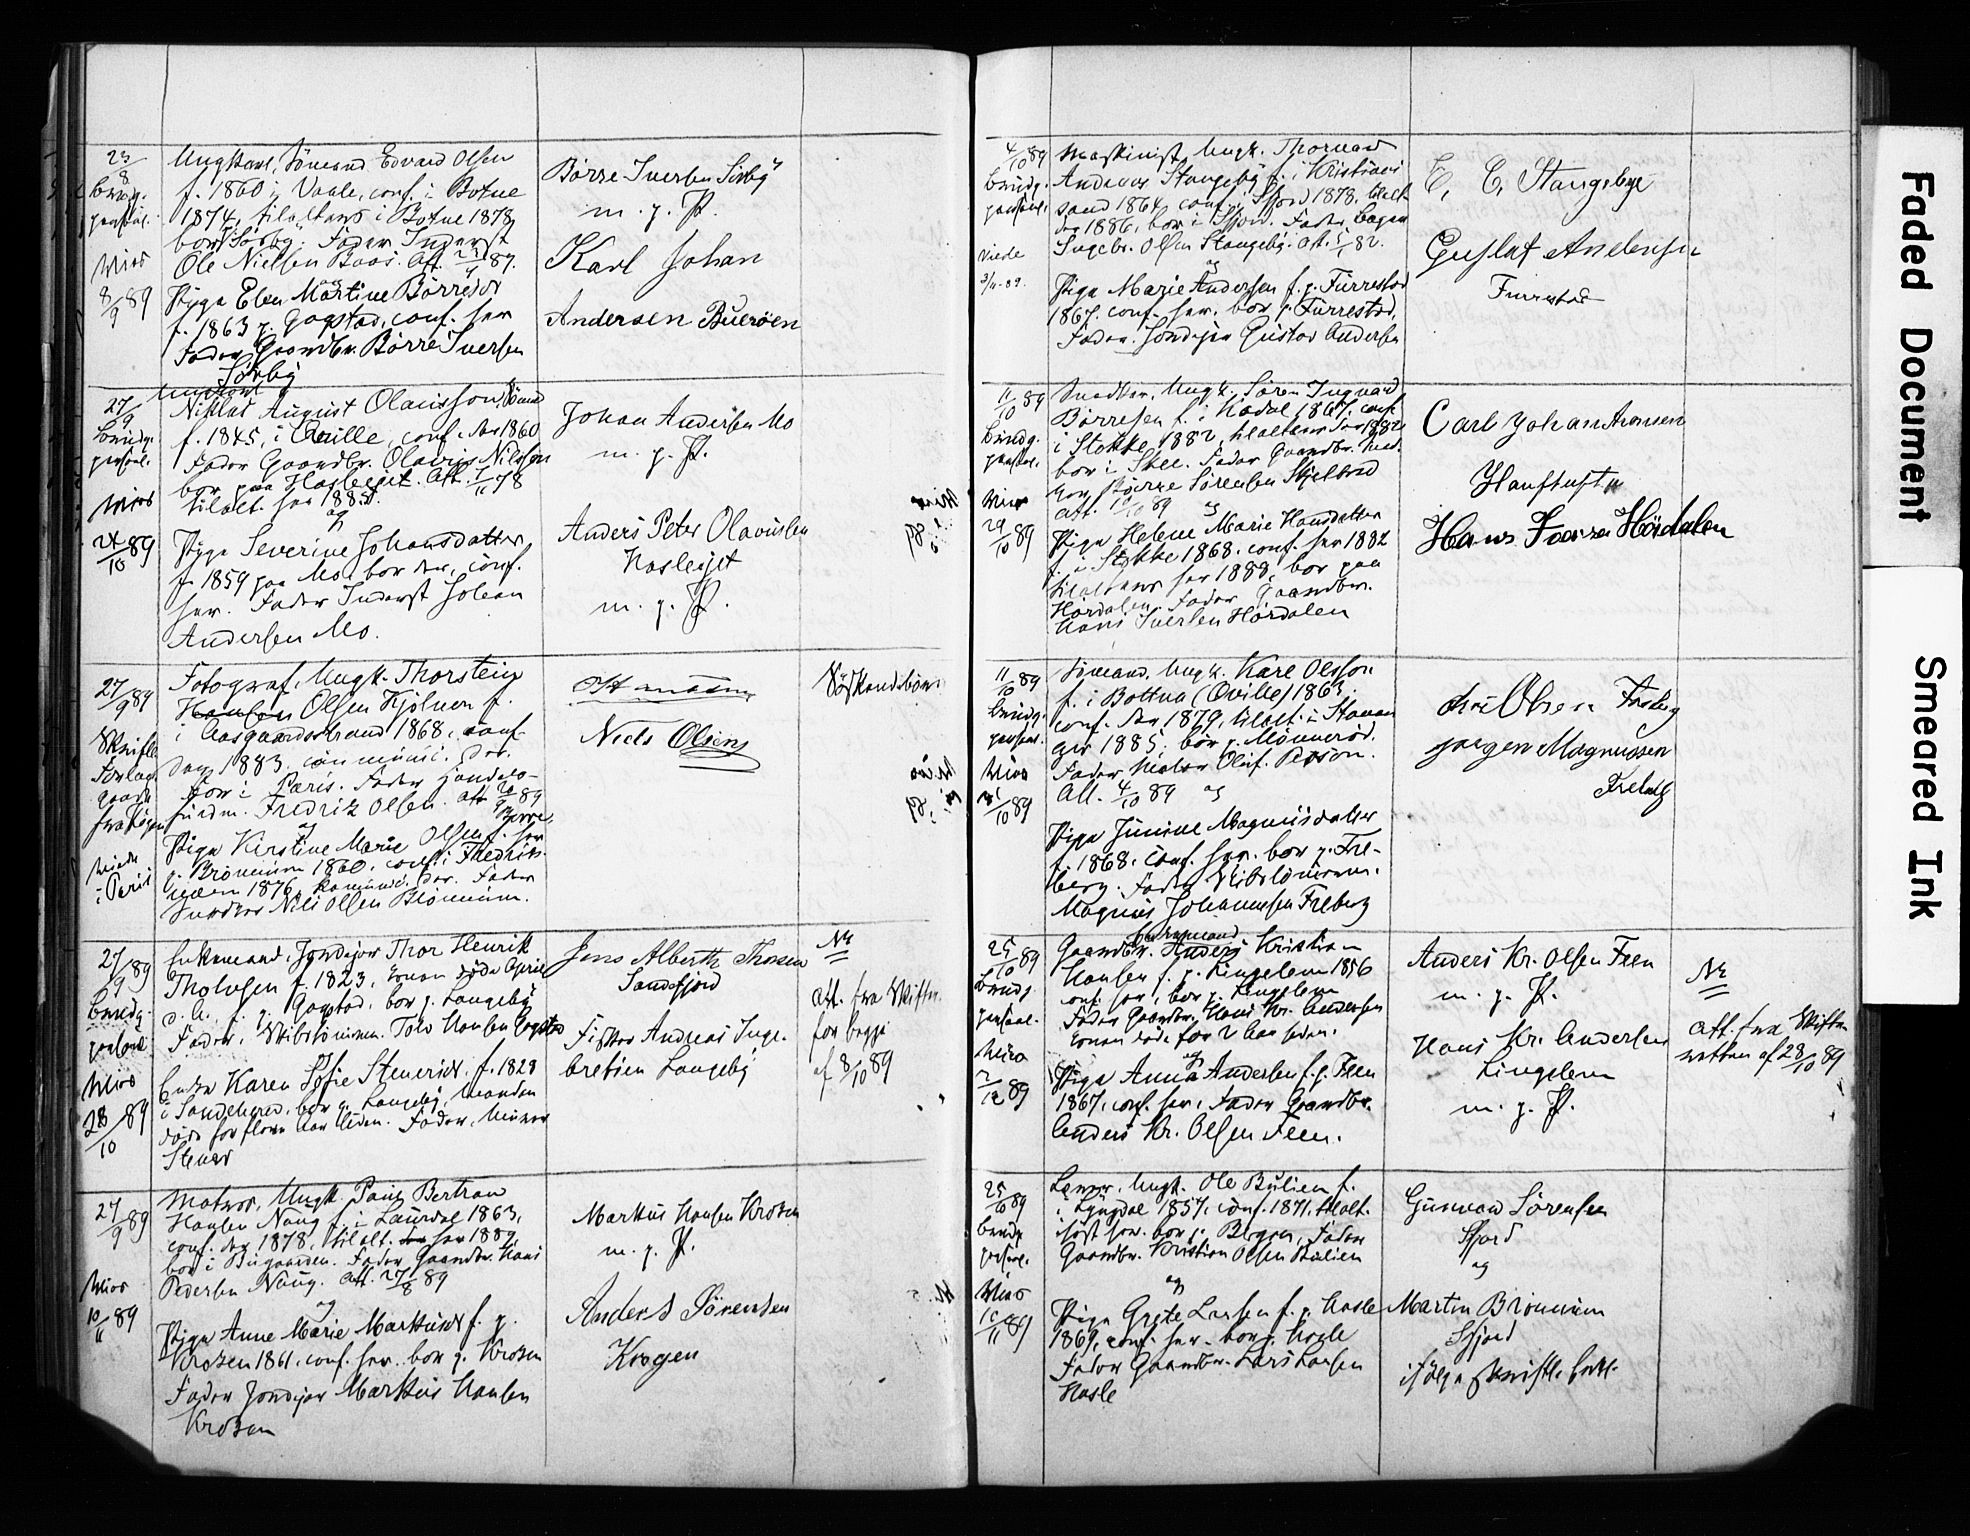 23/8
Ungkarl, Sömand Edvard Olsen
f. 1860 i Vaale, conf. i Botne
1874, tilaltens i Botne 1878
bor Sörby. Fader Inderst
Ole Nielsen Baas. Att.
og
Pige Elen Martine Börresdr
f. 1863 p. Gogstad, conf. her
Fader Gaardbr. Börre Iversen
Sörby
brudg.
personl.
Viet
8/9 89
Börre Iversen Sörby
m. p. P.
Karl Johan
Andersen Bueröen
27/9
brudg.
personl.
Viet
24/10 89
Ungkarl
Niklas August Olausson, Sömand
f. 1845, i Qville, conf. der 1860
Fader Gaardbr. Olavus Nilsson
bor paa Hasleejet. Att. 78
tilalt. her 1885.
og
Pige Severine Johansdatter,
f. 1859 paa Mo, bor der, conf.
her. Fader Inderst Johan
Andersen Mo.
Johan Andersen Mo
m. p. P.
Anders Peter Olavussen
Hasleejet
m. p. P.
27/9 89
Skriftl.
Forlan
fra
viede
i Paris
Fotograf, Ungk. Thorstein
Hansen Olsen Kjölner f.
i Aasgaardsstrand 1868, conf.
der 1883, communi. der.
bor i Paris. Fader Handels-
Fredrik Olsen. Att 89
og
Pige Kirstine Marie Olsen f. her
p. Brönnum 1860, conf. i Fredriks-
værn 1876, kommuni. der. Fader
Snedker Nils Olsen Brönnum.
Niels Olsen
Söskendebörn
27/9 89
brudg.
personl.
Viet
28/10 89
Enkemand, Jordejer Thor Henrik
Tholvsen f. 1823, konen döde April
d. A., f. p. Gogstad, bor p. Langeby
Fader, Skibstömmerm. Tolv Hansen Gogstad
Enke Karen Sofie Stenersdr. f. 1828
i Sandeherred, bor p. Langeby, manden
döde for flere Aar siden. Fader, Murer
Stener
Jens Alberth Thorsen
Sandefjord
Fisker Andreas Inge-
bretsen Langeby
No
Att. fra Skifter.
for begge
af 8/10 89
27/9 89
Viet
10/11 89
Matros, Ungk. Paul Bertran
Hansen Naug f. i Laurdal 1863,
conf. der 1878, tilalt. der her 1889
bor i Bugaarden. Fader Gaardbr. Hans
Pedersen Naug. Att. 27/8 89
og
Pige Anne Marie Markusdr f. p.
Kroken 1861, conf. her. bor p. Kroken
Fader Jordejer Markus Hansen
Kroken
Markus Hansen Kroken
m. p. P.
Anders Sörensen
Krogen
4/10 89
brudg.
personl.
Viede
3/11 89.
Maskinist, Ungk. Thorvad
Andreas Stangeby f. i Kristian-
sand 1864, conf. i Sfjord 1878, tilalt.
der 1886, bor i Sfjord. Fader
Ingebr. Olsen Stangeby. Att.
og
Pige Marie Andersen f. p. Furrestad
1867, conf. her, bor p. Furrestad,
Fader Jordejer Gustav Andersen
C. C. Stangebye
Gustaf Andersen
Furrestad
11/10 89
brudg.
personl.
Viet
29/10 89
Snedker, Ungk. Sören Ingvard
Börresen f. i Kodal 1867, conf.
i Stokke 1882, tilaltens der 1882
bor i Skee. Fader Gaardbr. ned.
Börre Sörensen Skjelbred
Att. 89
og
Pige Helene Marie Hansdatter
f. i Stokke 1868, conf. her 1882
tilaltens her 1888, bor paa
Hördalen. Fader Gaardbr.
Hans Iversen Hördalen
Carl Johan Aronsen
Hauftuft
Hans Iversen Hördalen
11/10 89
brudg.
personl.
Viet
31/10 89
Sömand, Ungk. Karl Olsson
f. i Bottna (Qville) 1863.
conf. der 1879, tilalt. i Stavan
ger 1885, bor p. Mönneröd.
Fader Olof Person.
Att. 4/10 89 og
Pige Junine Magnusdatter
f. 1868, conf. her, bor p. Fre-
berg. Fader Skibstömmerm.
Magnus Johannessen Freberg
Olsen Freberg
Jørgen Magnussen
Freberg
25/10 89
brudg.
personl.
Viet
2/12 89
Enkemand
Gaardbr. Anders Kristian
Hansen f. p. Lingelem 1856
conf. her, bor p. Lingelem
Fader Gaardbr. Hans Kr. Andersen
konen döde for 2 Aar siden.
og
Pige Anna Andersen f. p. Feen
1867, conf. her, Fader Gaardbr.
Anders Kr. Olsen Feen.
Anders Kr. Olsen Feen
m. p. P.
Hans Kr. Andersen
Lingelem
m. p. P.
No
Att. fra Skifte
retten af 28/10 89
25/10 89
brudg
personl.
Viet
10/11 89
Ungk. Ole Bulien f.
i Lyngdal 1857, conf. 1871, tilalt.
ifjöst her, bor p. Fader
Gaardbr. Kristian Olsen Bulien
og
Pige Grete Larsen f. p. Hasle
1869, conf. her, bor p. Hasle
Fader Gaardbr. Lars Larsen
Hasle
Gunvald Sörensen
Sfjord
og
Martin Brönnum
Sfjord
ifölge skriftl. Erkl.
Faded Document
Smeared Ink